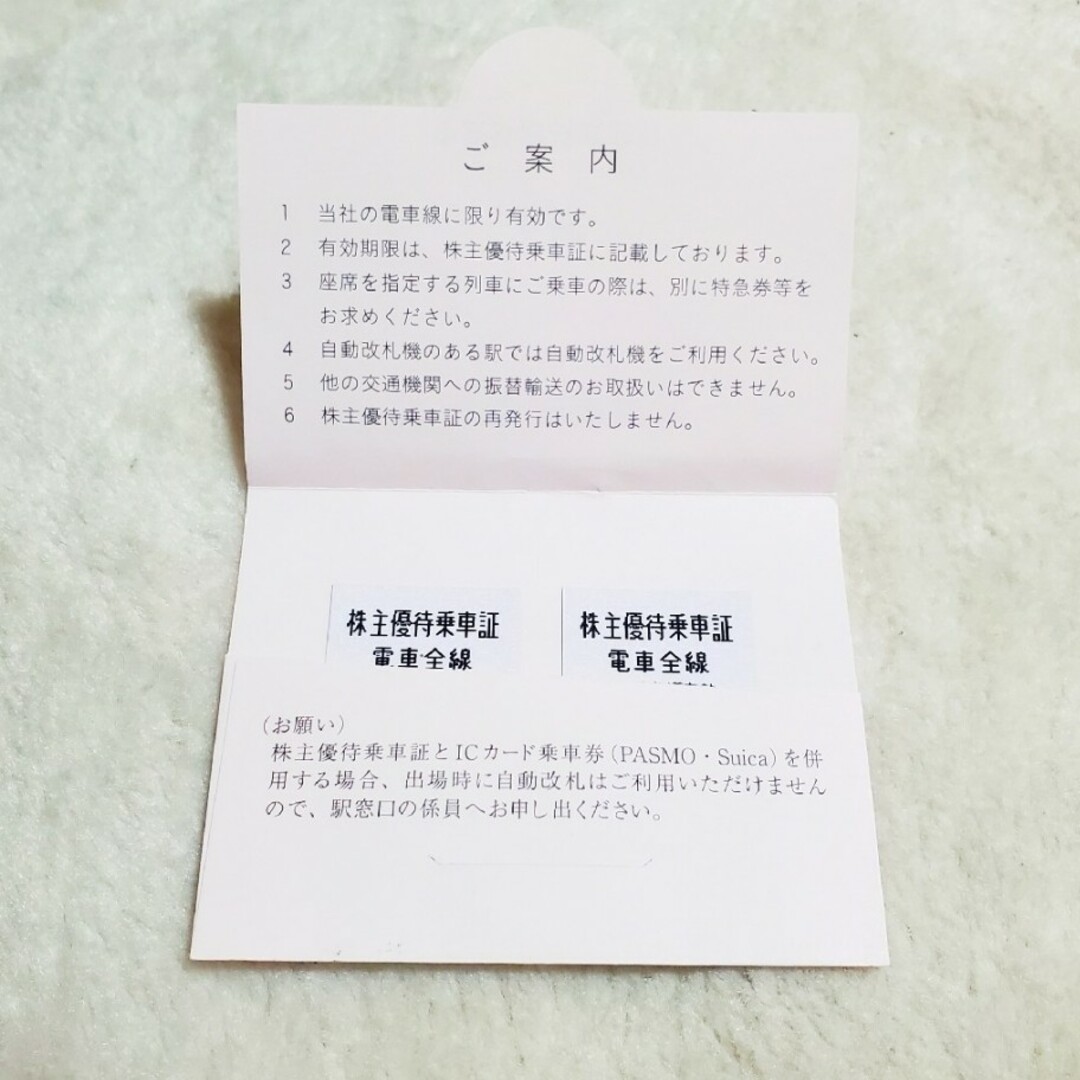 ご案内
1 当社の電車線に限り有効です。
2 有効期限は、株主優待乗車証に記載しております。
3 座席を指定する列車にご乗車の際は、別に特急券等を
お求めください。
4 自動改札機のある駅では自動改札機をご利用ください。
5 他の交通機関への振替輸送のお取扱いはできません。
6 株主優待乗車証の再発行はいたしません。
株主優待乗車証
電車全線
株主優待乗車証
電車全線
(お願い)
株主優待乗車証とICカード乗車券(PASMO・Suica)を併
用する場合、出場時に自動改札はご利用いただけません
ので、駅窓口の係員へお申し出ください。